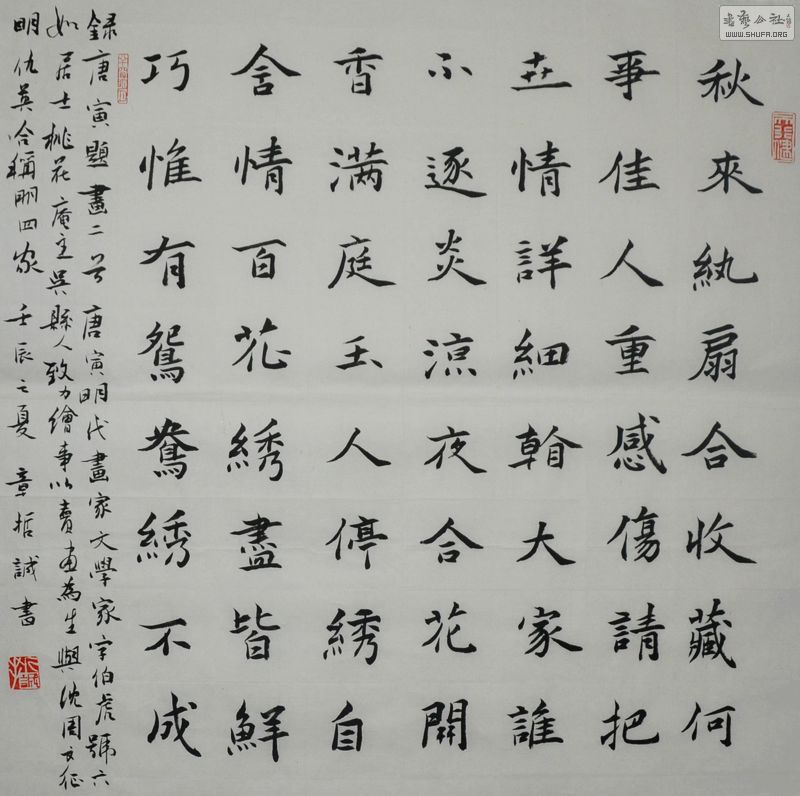 秋來紈扇合收藏何
事佳人重感傷請把
世情詳細看大家誰
不逐炎涼夜合花開
香滿庭玉人停綉自
含情百花綉盡皆鮮
巧惟有鴛鴦綉不成
録唐寅題畫二首 唐寅明代畫家文學家字伯虎號六
如居士桃花庵主吳縣人致力繪事以賣畫為生與沈周文征
明仇英合稱明四家 壬辰之夏 章哲誠書
書藝公社
WWW.SHUFA.ORG